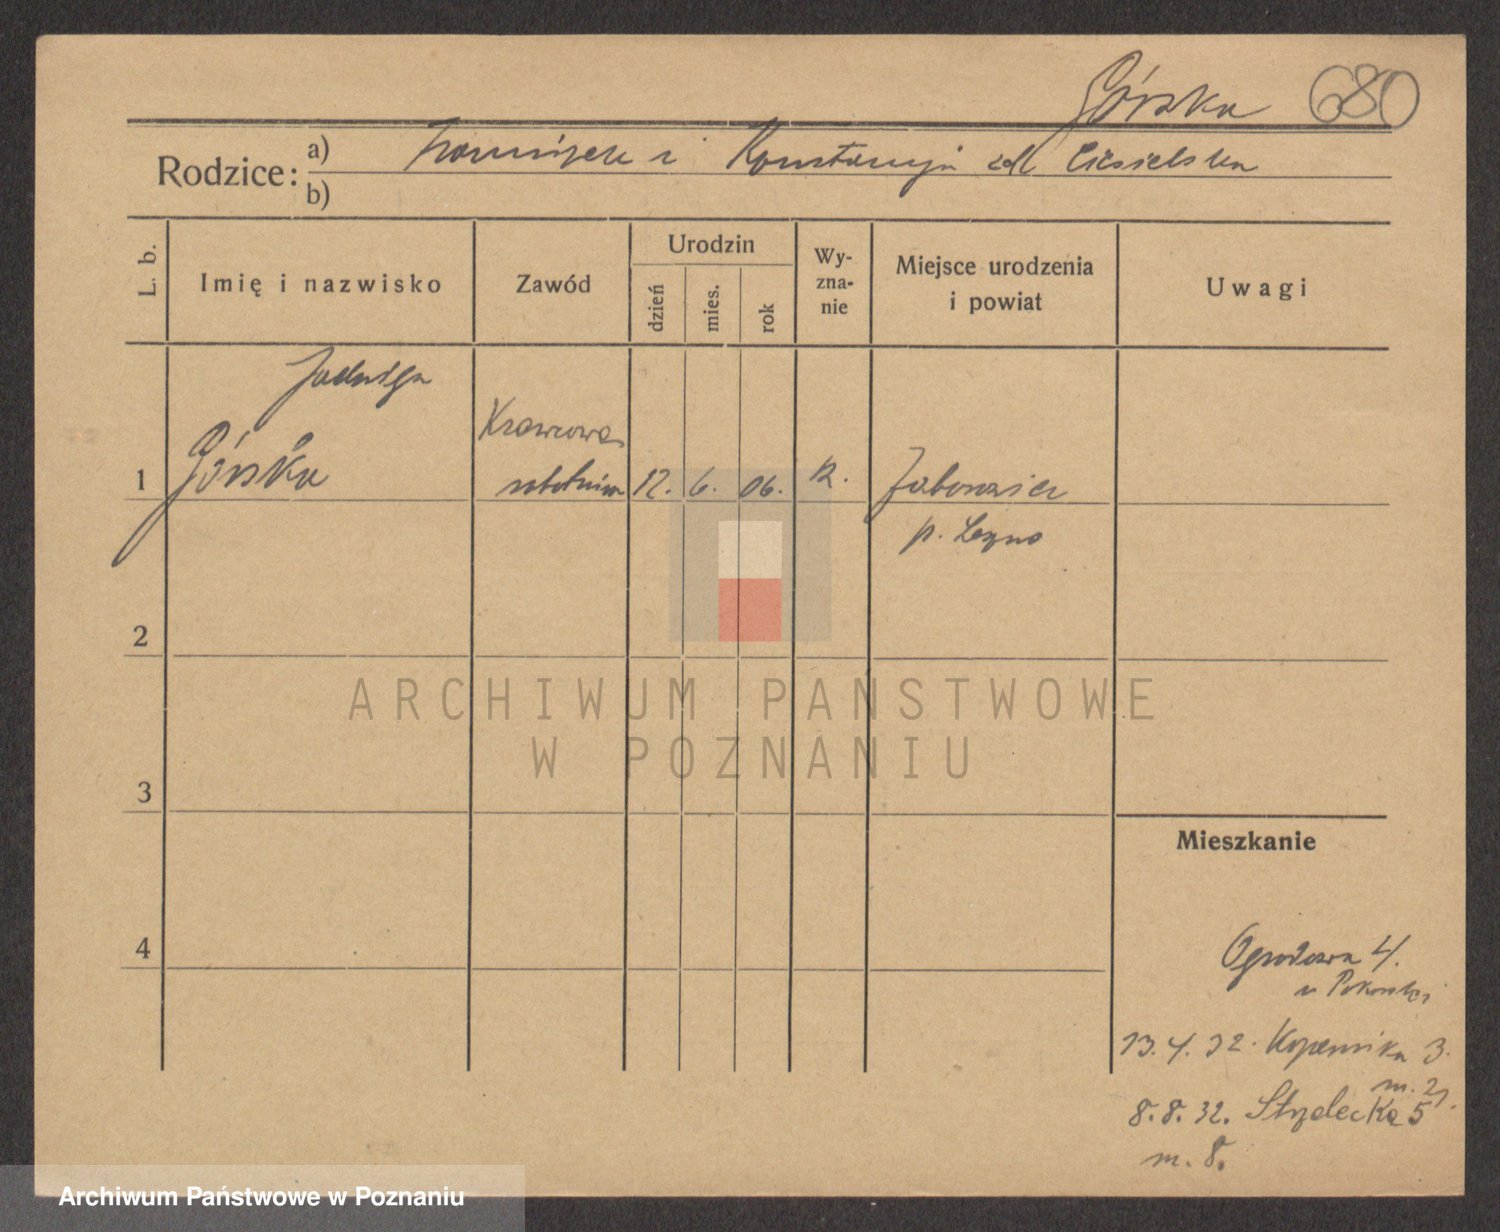 Górska 680
Rodzice: a) Franciszek i Konstancja zd. Ciesielska
b)
L. b.
Imię i nazwisko
Zawód
Urodzin
dzień
mies.
rok
Wy-
zna-
nie
Miejsce urodzenia
i powiat
Uwagi
Jadwiga
1 Górska Krawcowa 12. 6. 06. R.
p. Leszno
2
3
4
ARCHIWUM PAŃSTWOWE
W POZNANIU
Mieszkanie
Ogrodowa 4.
13.4.32. Kopernika 3.
8.8.32. Strzelecka 5
m. 8.
Archiwum Państwowe w Poznaniu